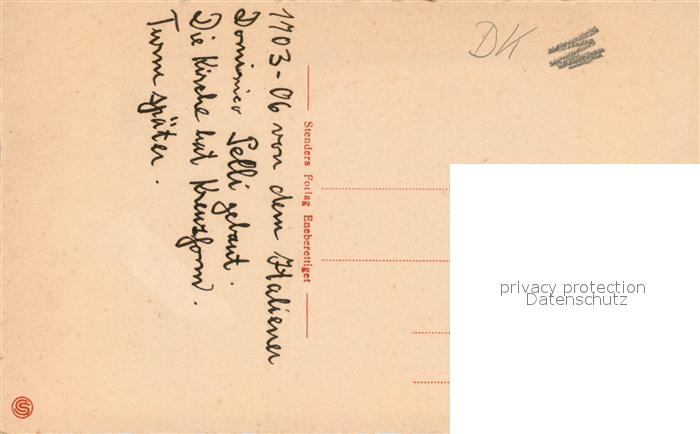 1703-06 von dem Italiener
Dominico Pelli gebaut.
Die Kirche hat Kreuzform.
Turm später.
Stenders Forlag Eneberettiget
DK
privacy protection
Datenschutz